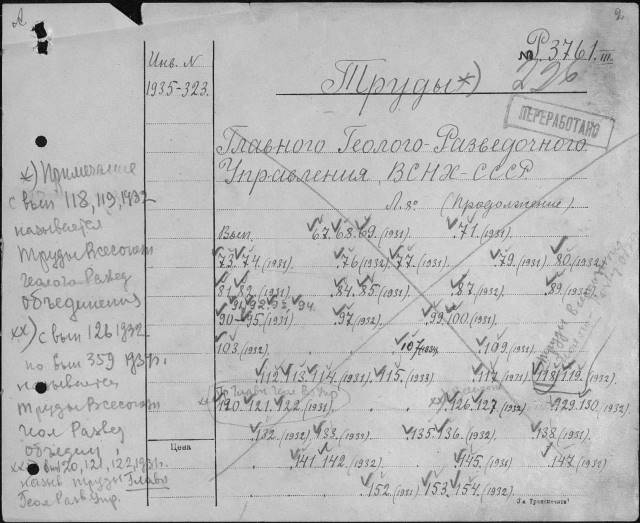 2.
Р.3761.III
226
Инв. N
1935-323.
Труды *)
ПЕРЕРАБОТАНО
Главного Геолого-Разведочного
Управления ВСНХ-СССР
Л. 8° (Продолжение)
Вып. 67. 68. 69. (1931). 71. (1931).
73. 74. (1931). 76. (1932) 77. (1931). 79. (1931) 80. (1932)
81. 82. (1931) 84. 85. (1931). 87. (1932) 89. (1932)
91. 92. 93. 94.
90 - 95. (1931) 97. (1932) 99. 100. (1931).
103. (1932) 107. 109. (1931)
112. 113. 114. (1931). 115. (1933) 117. (1931) 118. 119. (1932)
xx) 120. 121. 122. (1931) xx) 126. 127. (1932) 129. 130. (1932)
132. (1932) 133. (1932) 135. 136. (1932) 138. (1931)
141. 142. (1932) 145. (1931) 147. (1931)
152. (1931) 153. 154. (1932)
*) Примечание
с вып 118, 119, 1932
называется
Труды Всесоюзн
Геолого-Развед
объединения
xx) с вып 126 1932
по вып 359 1934г.
называется
Труды Всесоюзн
Геол Развед
объедин.
xxx) вып 120, 121, 122, 1931г.
назыв труды Главн
Геол Разв Упр.
Цена